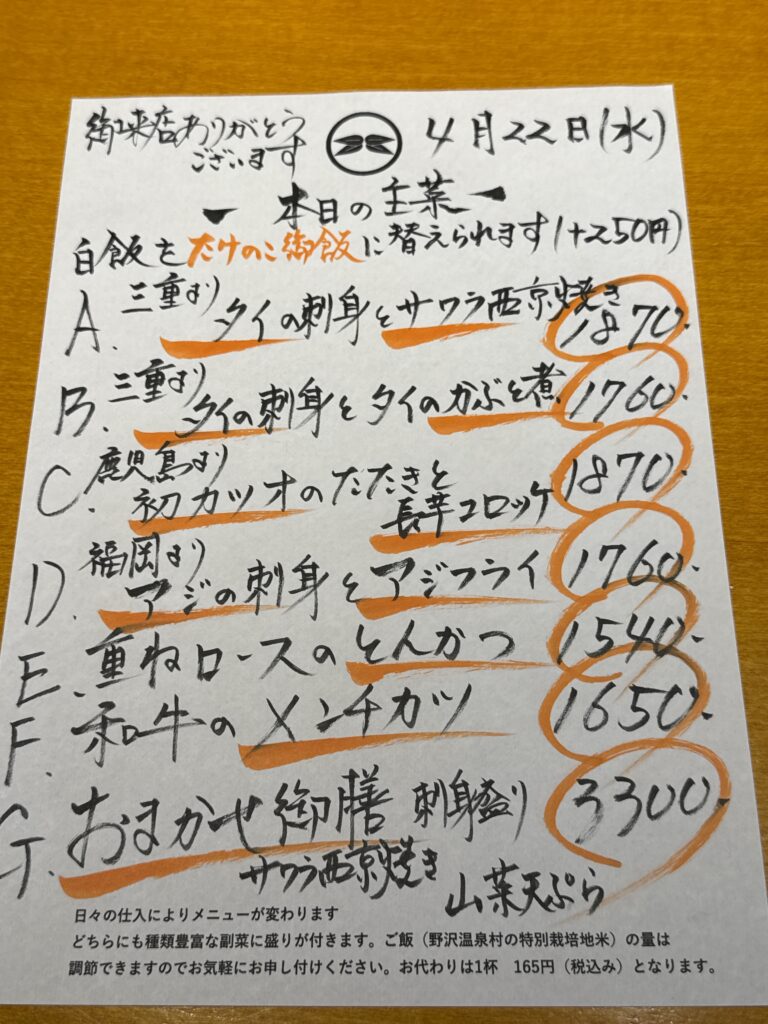 御来店ありがとう
ございます
4月22日(水)
本日の主菜
白飯をたけのこ御飯に替えられます(+250円)
A. 三重より タイの刺身とサワラ西京焼き 1870.
B. 三重より タイの刺身とタイのかぶと煮 1760.
C. 鹿児島より 初カツオのたたきと
長芋コロッケ 1870.
D. 福岡より アジの刺身とアジフライ 1760.
E. 重ねロースのとんかつ 1540.
F. 和牛のメンチカツ 1650.
G. おまかせ御膳 刺身盛り 3300.
サワラ西京焼き 山菜天ぷら
日々の仕入によりメニューが変わります
どちらにも種類豊富な副菜に盛りが付きます。ご飯（野沢温泉村の特別栽培地米）の量は
調節できますのでお気軽にお申し付けください。お代わりは1杯 165円（税込み）となります。